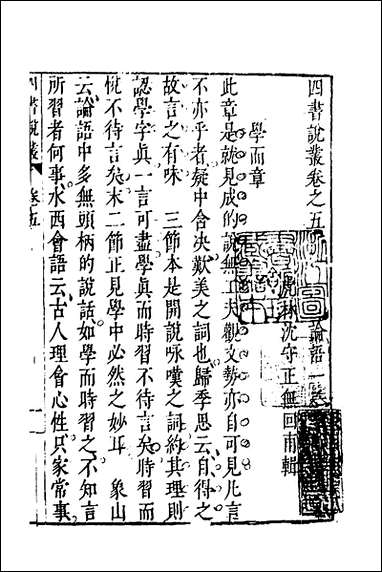 四書說叢卷之五
論語一
虎林沈守正無回甫輯
學而章
此章是就見成的說無工夫觀文勢亦自可見凡言
不亦乎者疑中含决歎美之詞也歸季思云自得之
故言之有味　三節本是開說咏嘆之詞約其理則
認學字眞一言可盡學眞而時習不待言矣時習而
悅不待言矣末二節正見學中必然之妙耳　象山
云論語中多無頭柄的說話如學而時習之不知言
所習者何事水西會語云古人理會心性只家常事
四書說叢　卷五